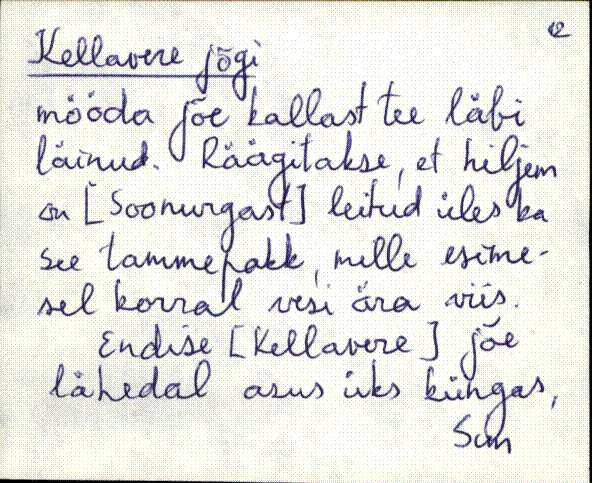 12
Kellavere jõgi
mööda jõe kallast tee läbi
läinud. Räägitakse, et hiljem
on [Soonurgast] leitud üles ka
see tammepakk, mille esime-
sel korral vesi ära viis.
Endise [Kellavere] jõe
lähedal asus üks küngas,